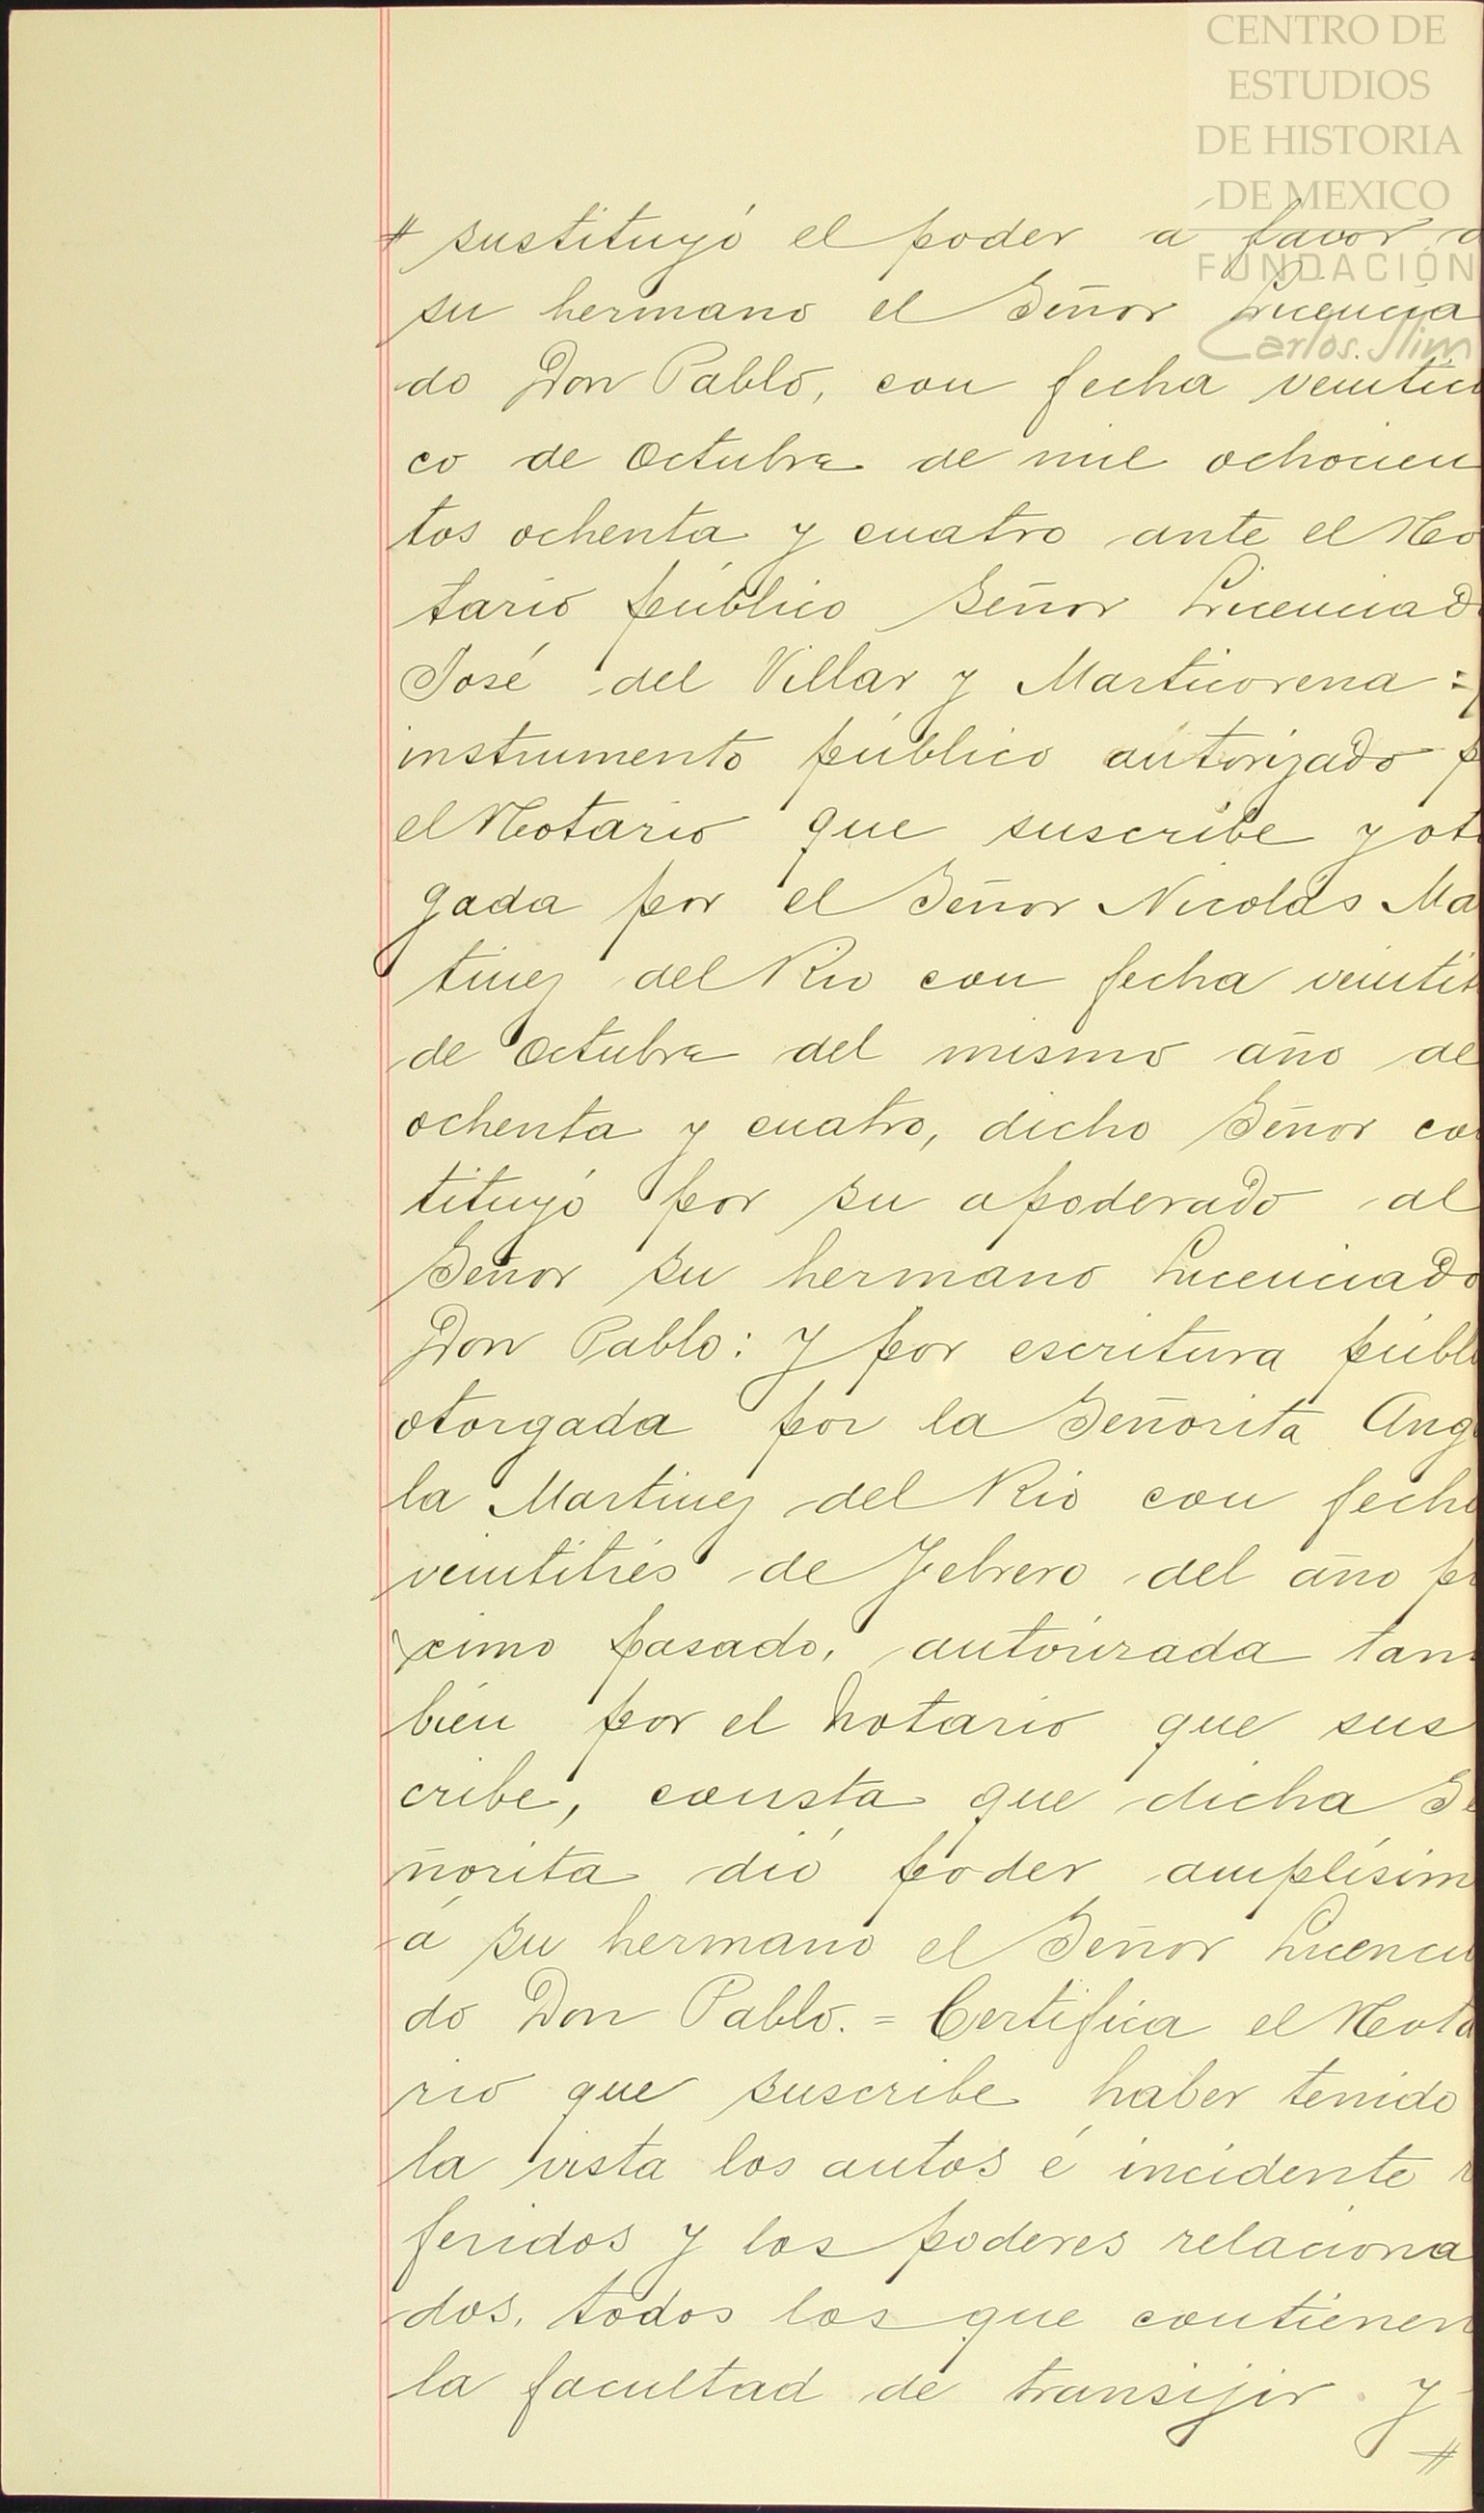 CENTRO DE
ESTUDIOS
DE HISTORIA
DE MEXICO
FUNDACIÓN
Carlos Slim
# sustituyó el poder a favor d
su hermano el Señor Licencia
do Don Pablo, con fecha veintici
co de Octubre de mil ochocien
tos ochenta y cuatro ante el No
tario público Señor Licenciado
José del Villar y Marticorena =
instrumento público autorizado p
el Notario que suscribe y oto
gada por el Señor Nicolás Ma
tinez del Rio con fecha veintit
de Octubre del mismo año de
ochenta y cuatro, dicho Señor co
tituyó por su apoderado al
Señor su hermano Licenciado
Don Pablo: y por escritura públi
otorgada por la Señorita Ang
la Martinez del Rio con fecha
veintitrés de Febrero del año pr
ximo pasado, autorizada tam
bién por el Notario que sus
cribe, consta que dicha Se
ñorita dió poder amplísim
á su hermano el Señor Licencia
do Don Pablo. = Certifica el Nota
rio que suscribe haber tenido
la vista los autos é incidente r
feridos y los poderes relaciona
dos, todos los que contienen
la facultad de transijir y
#